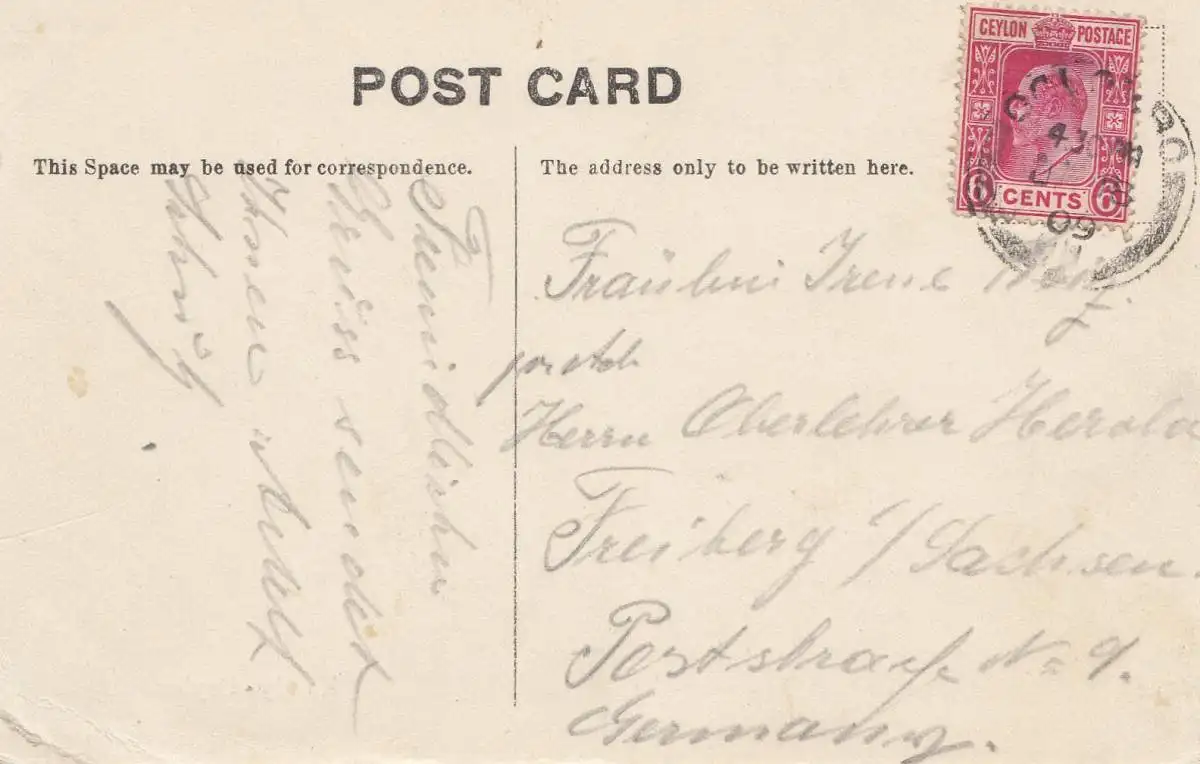 POST CARD
CEYLON POSTAGE
6 CENTS 6
COLOMBO
09
This Space may be used for correspondence.
The address only to be written here.
Freundlichen
Gruss sendet
Ihnen
Fräulein Irene
Herrn Oberlehrer Herold
Freiberg i/Sachsen.
Poststraße No 9.
Germany.